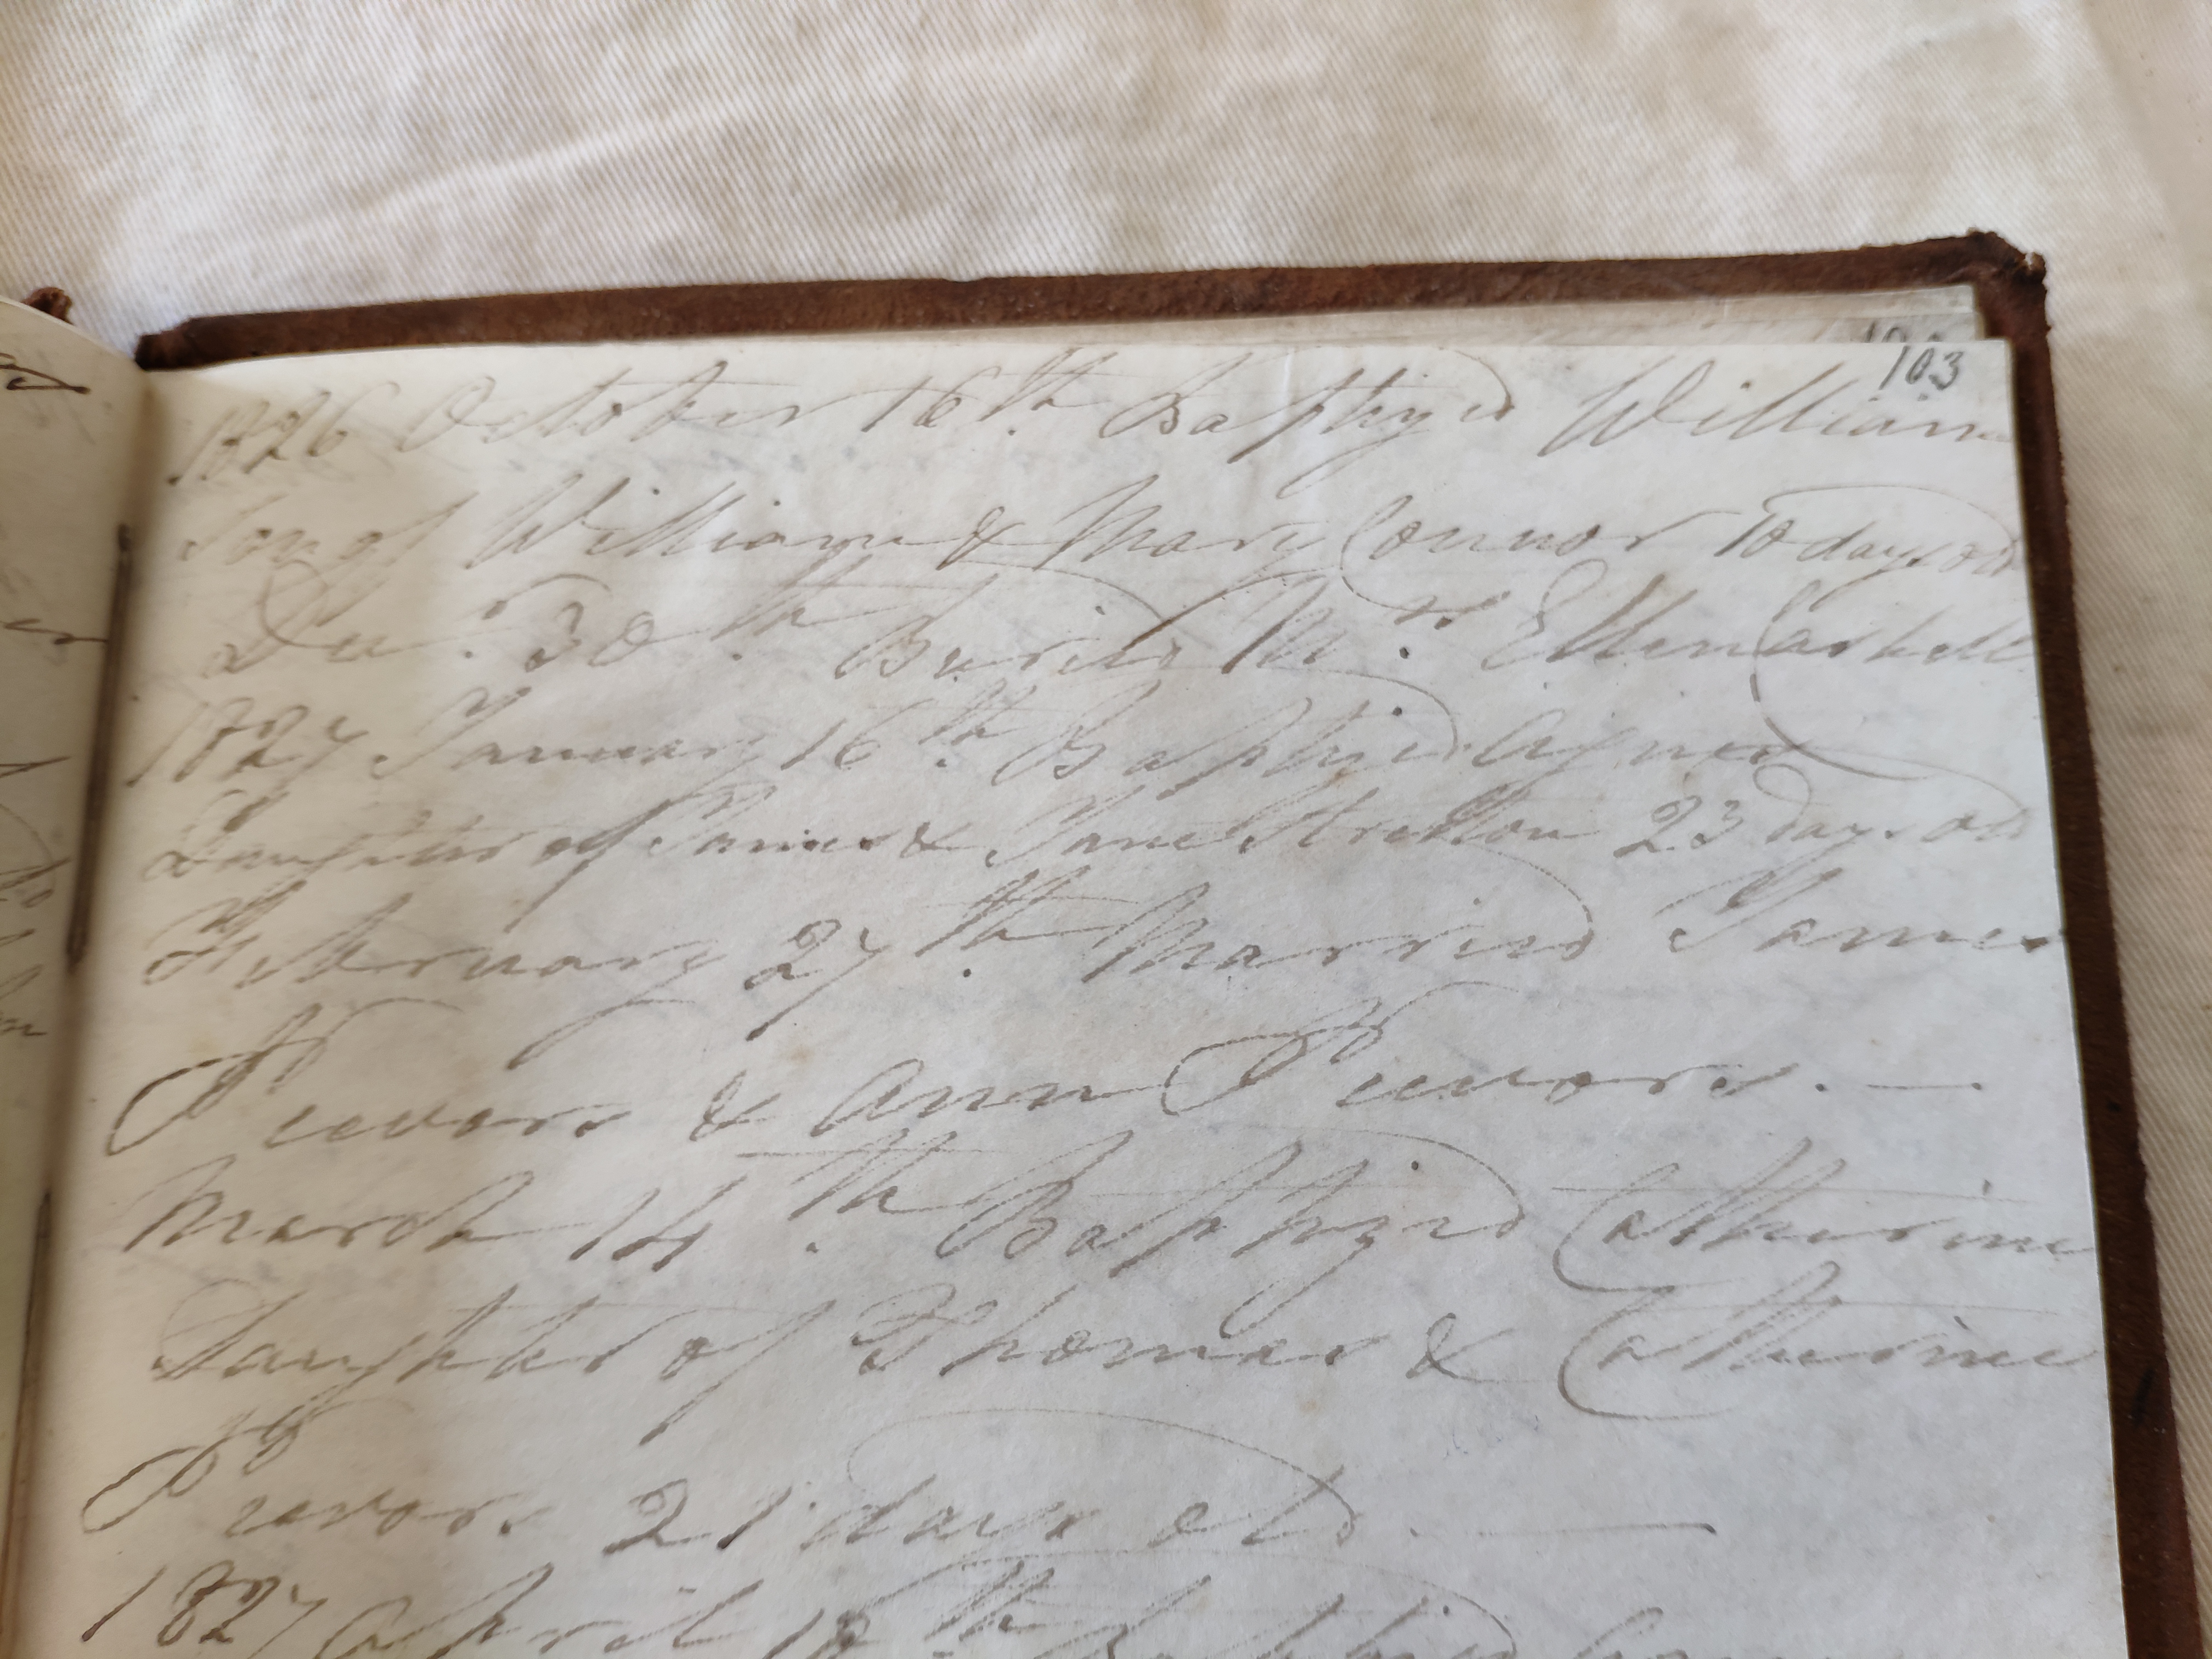 103
1826 October 16th. Baptized William
Son of William & Mary Connor 10 days old
Dec. 30th. Buried Mrs. Ellen Caskell
1827 January 16th. Baptized Agnes
Daughter of James & Jane Stretton 23 days old
February 27th. Married James
Peevors & Ann Peevors. —
March 14th. Baptized Catherine
Daughter of Thomas & Catherine
Peevors 21 days old. —
1827 April 18th. Baptized